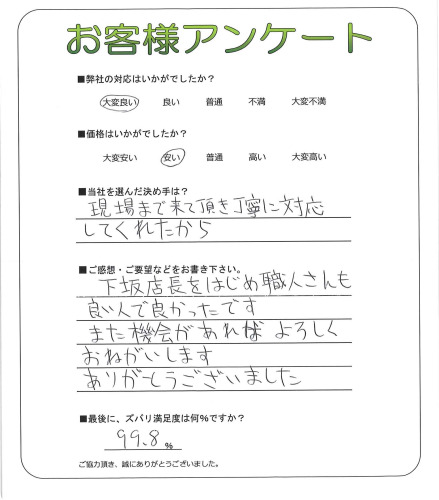 お客様アンケート
■弊社の対応はいかがでしたか?
大変良い 良い 普通 不満 大変不満
■価格はいかがでしたか?
大変安い 安い 普通 高い 大変高い
■当社を選んだ決め手は?
現場まで来て頂き丁寧に対応
してくれたから
■ご感想・ご要望などをお書き下さい。
下坂店長をはじめ職人さんも
良い人で良かったです
また機会があれば よろしく
おねがいします
ありがとうございました
■最後に、ズバリ満足度は何%ですか?
99.8 %
ご協力頂き、誠にありがとうございました。